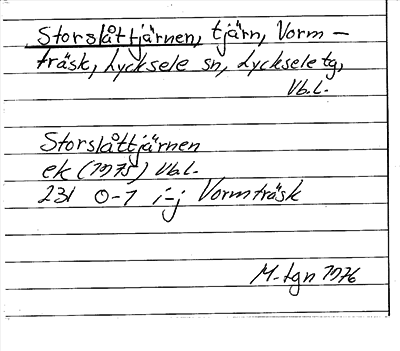 Storslåttjärnen, tjärn, Vorm-
träsk, Lycksele sn, Lycksele tg,
Vb.l.
Storslåttjärnen
ek (1975) Vb.l.
231 0-1 i-j Vormträsk
M-tgn 1976